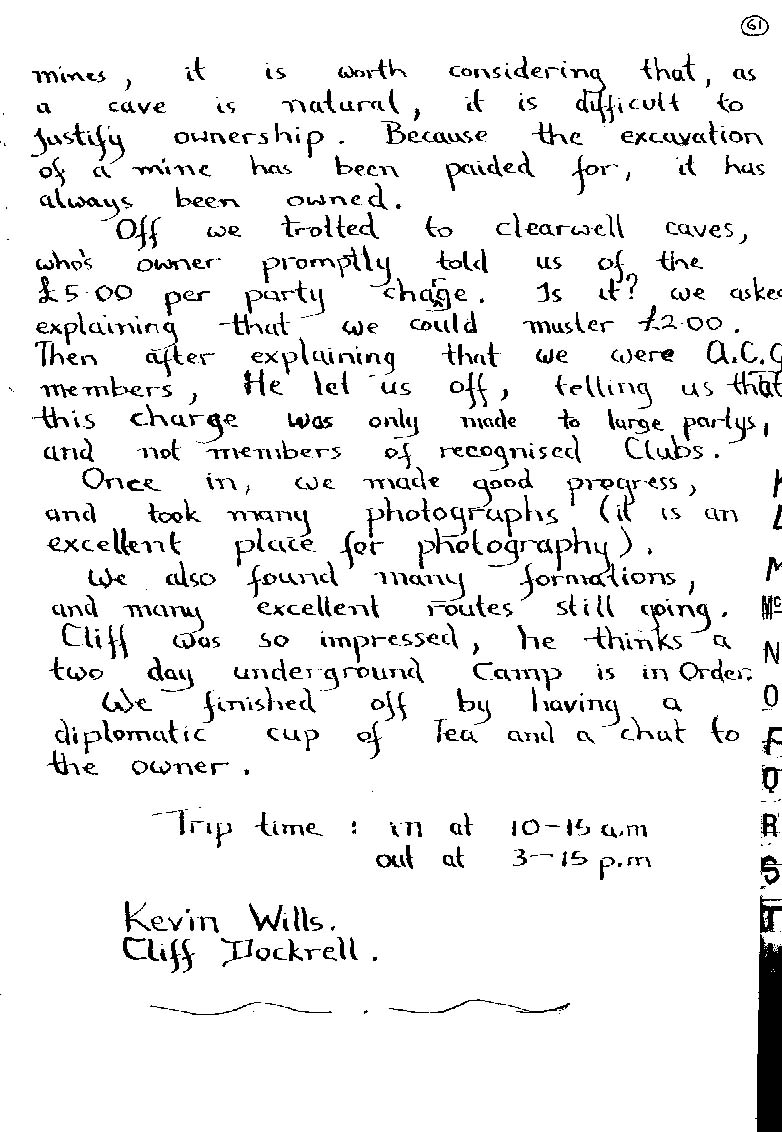 61
mines, it is worth considering that, as
a cave is natural, it is difficult to
Justify ownership. Because the excavation
of a mine has been paided for, it has
always been owned.
Off we trotted to clearwell caves,
who's owner promptly told us of the
£5.00 per party charge. Is it? we asked
explaining that we could muster £2.00.
Then after explaining that we were A.C.G
members, He let us off, telling us that
this charge was only made to large partys,
and not members of recognised Clubs.
Once in, we made good progress,
and took many photographs (it is an
excellent place for photography).
We also found many formations,
and many excellent routes still going.
Cliff was so impressed, he thinks a
two day underground Camp is in Order.
We finished off by having a
diplomatic cup of Tea and a chat to
the owner.
Trip time : in at 10-15 a.m
out at 3-15 p.m
Kevin Wills.
Cliff Dockrell.
M
Mc
N
O
F
O
R
S
T